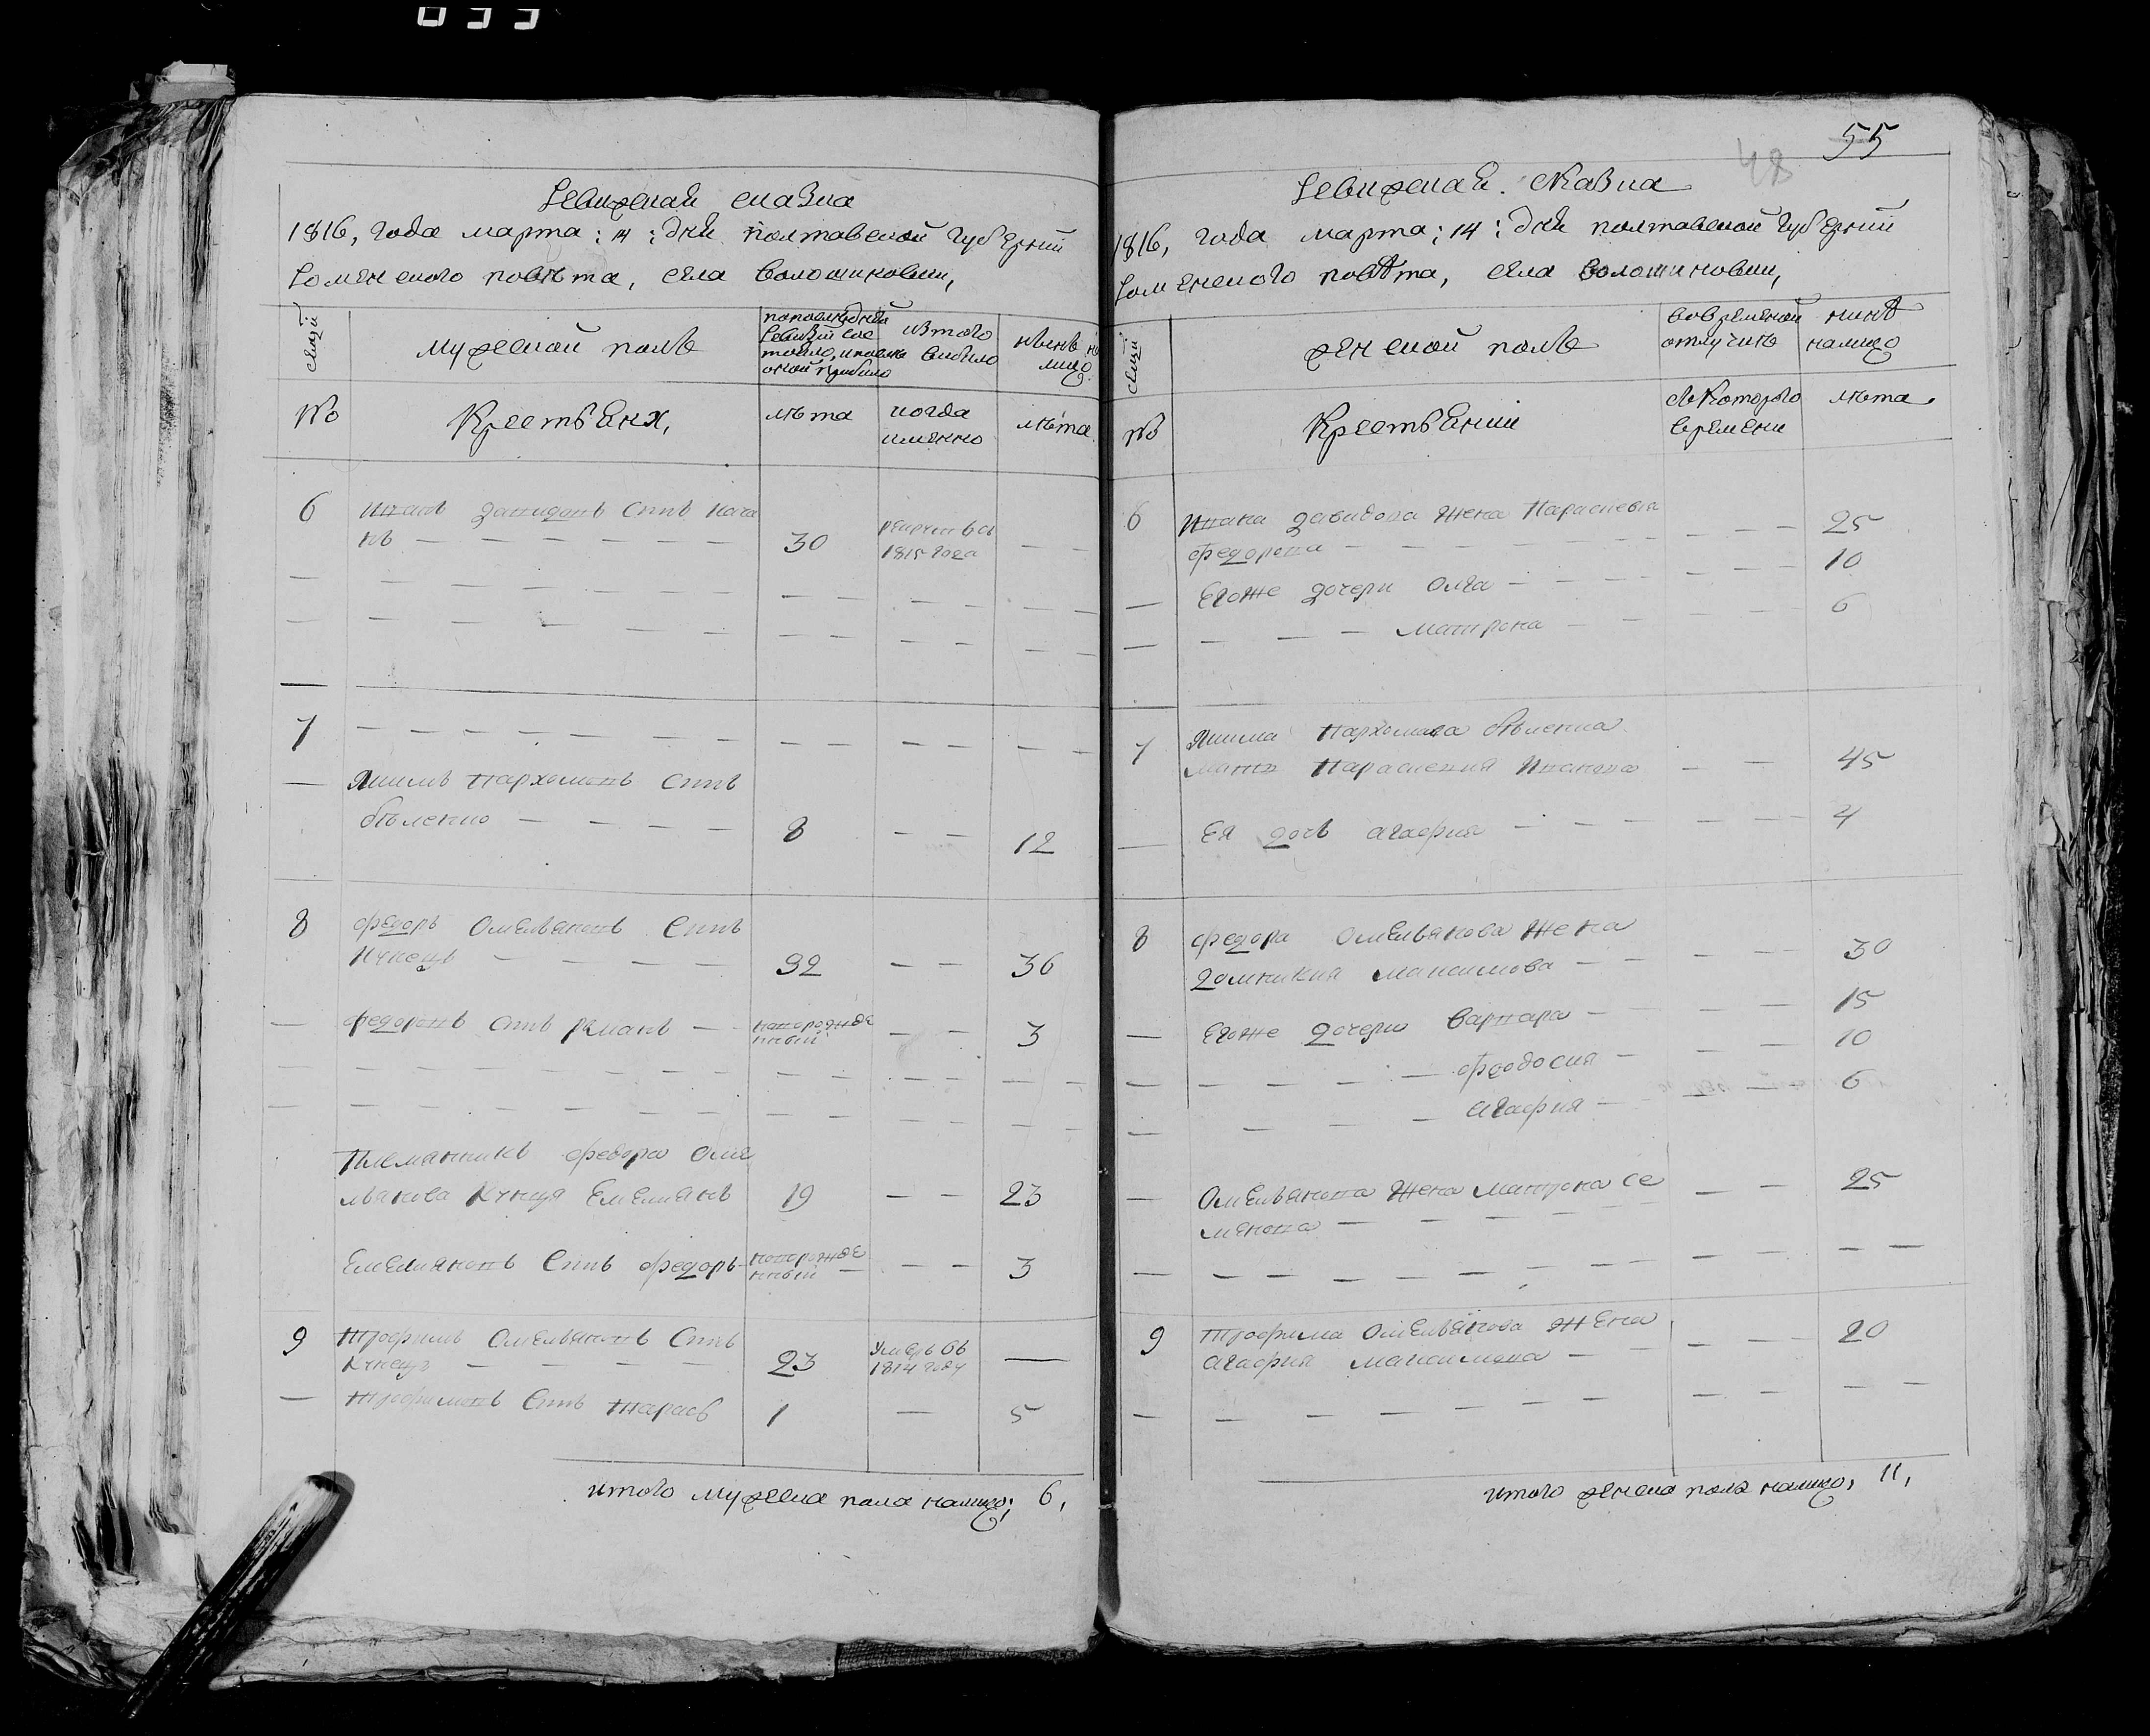 033
Ревизская сказка
1816, года марта: 14: дня полтавской губернии
роменского повѣта, села волошиновки,
семьи
мужеской полъ
пополѣдней ревизии состояло, и послѣ оной прибыло
изтого выбыло
нынѣ на лицо
No
Крестьянѣ,
лѣта
когда именно
лѣта
6
Иванъ Давидовъ Сынъ
30
1815 года
7
Якимъ Пархомовъ Сынъ
бѣленко
8
12
8
Федоръ Омельяновъ Сынъ
Кунецъ
32
36
Федоровъ Сынъ Романъ
новорожденный
3
Племянникъ Федора Оме
льянова Кунца Емелианъ
19
23
Емелияновъ Сынъ Федоръ
новорожденный
3
9
Трофимъ Омельяновъ Сынъ
Кунецъ
23
Умеръ въ 1814 году
Трофимовъ Сынъ Тарасъ
1
5
итого мужеска пола налицо; 6,
55
48
Ревизская. Сказка
1816, года марта; 14: дня полтавской губернии
роменского повѣта, села волошиновки,
семьи
женской полъ
вовременной отлучкѣ
нинѣ налицо
No
Крестьянки
скоторого времени
лѣта
6
Ивана Давидова Жена Парасковія
Федорова
25
Егоже дочери Олга
10
Матрона
6
7
Якима Пархомова бѣленка
Мать Парасковия Иванова
45
Ея дочь Агафия
4
8
Федора Омельянова Жена
Домникия Максимова
30
Егоже Дочери Варвара
15
Феодосия
10
Агафия
6
Омельянова Жена Матрона Се
менова
25
9
Трофима Омельянова Жена
Агафия Максимова
20
итого женска пола налицо, 11,